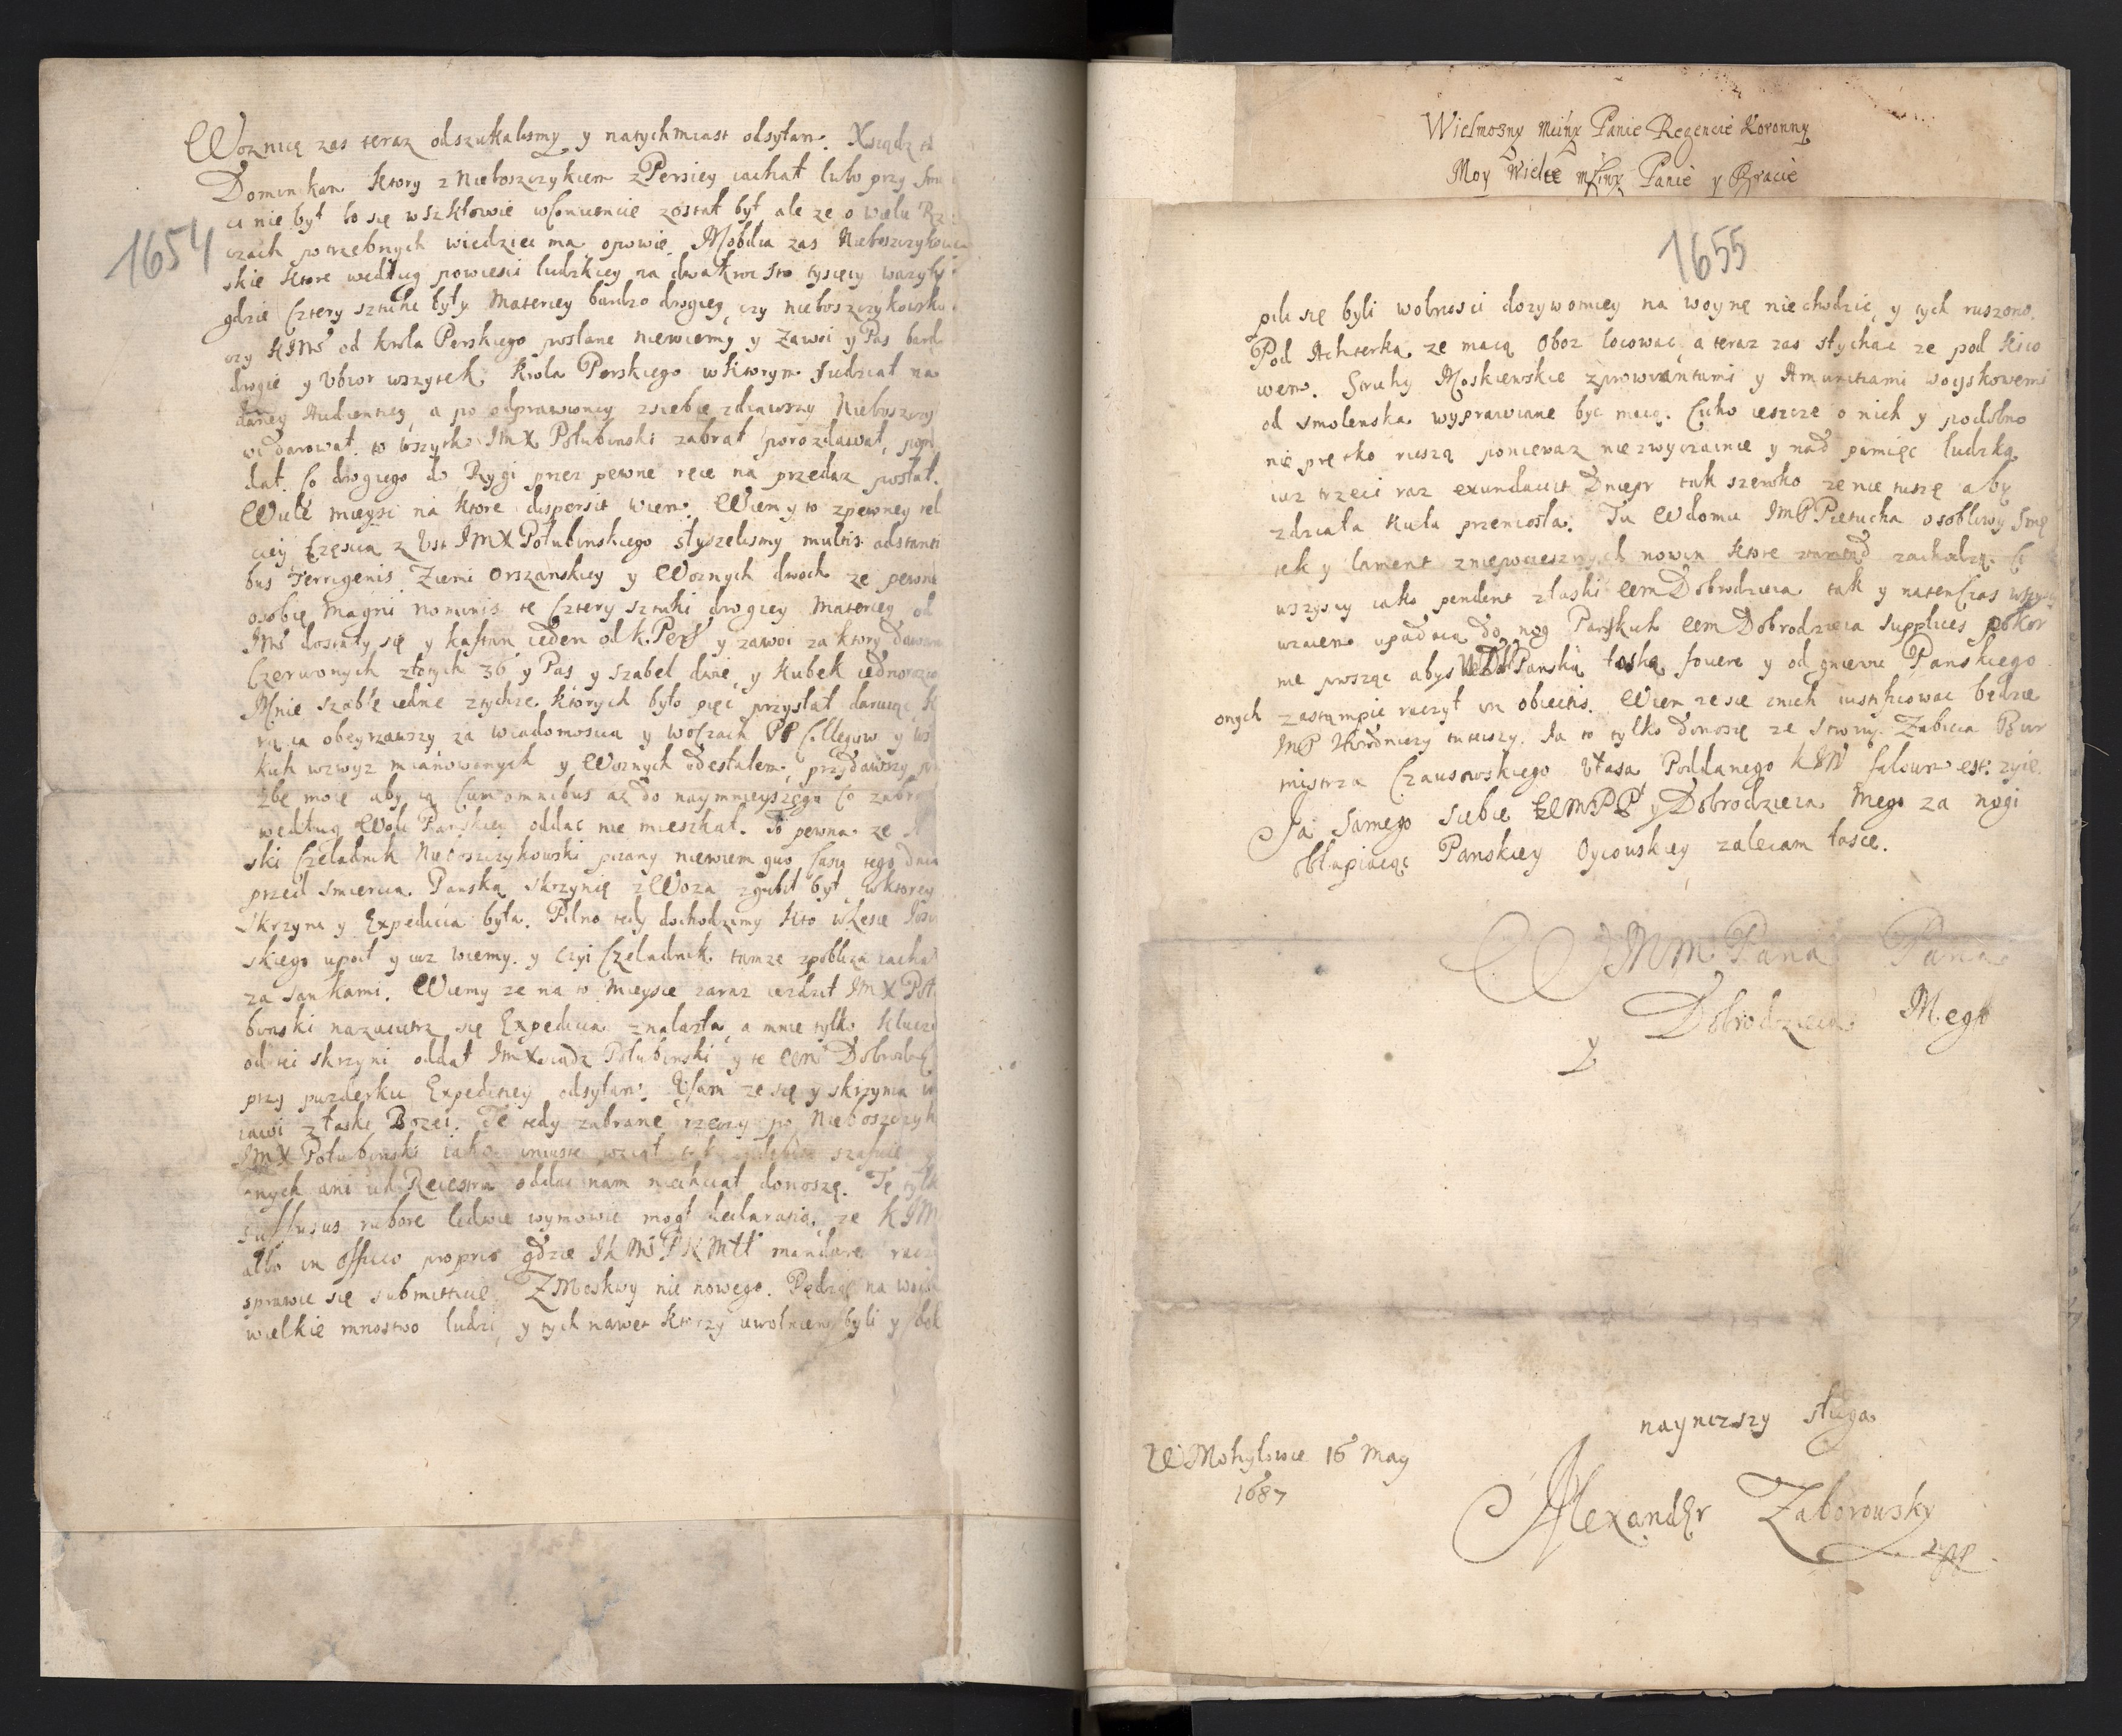 1654
Woznicę zas teraz odszukalismy y natychmiast odsyłam. Xsiądz
Dominikan ktory z Nieboszczykiem z Persiey iachał lubo przy
ci nie był bo się w Szkłowie w Conuencie został był ale ze o wielu
czach potrzebnych wiedziec ma opowie. Mobilia zas
skie ktore według powiesci ludzkiey na dwakroc sto tysięcy wazyły
gdzie Cztery sztuki były Materiey bardzo drogiey, czy nieboszczykowska
czy KIMs od krola Perskiego posłane niewiemy y Zawoi y Pas bard
drogie y Vbior wszytek Krola Perskiego w ktorym siedział na
daney Audientiey, a po odprawioney z siebie zdiąwszy Nieboszczy
wi darował. to wszytko IMX Połubinski zabrał porozdawał,
dał. Co drogiego do Rygi przez pewne ręce na przedaz posłał.
Wiele mieysc na ktore dispersit wiem. Wiem y to z pewney rel
ciey Częscią z Vst IMX Połubinskiego słyszelismy multis adstanti
bus Terrigenis Ziemi Orszanskiey y Woznych dwoch ze pewne
osobie magni nominis te Cztery sztuki drogiey Materiey od
IMs dostały się y kaftan ieden od k. Pers y zawoi za ktory dawano
Czerwonych złotych 36 y Pas y szabel dwie, y Kubek
Mnie szablę iednę z tychze ktorych było pięc przysłał daruiąc, k
rą ia obeyrzawszy za wiadomoscią y w oczach PP Collegow y
kich wzwyz mianowanych y Woznych odesłałem, przydawszy
zbę moię aby ią Cum omnibus az do naymnieyszego Co zabrał
według Woli Panskiey oddac nie mieszkał. To pewna ze
ski Czeladnik Nieboszczykowski piiany niewiem quo Casu tego dnia
przed smiercią Panską skrzynię z Woza zgubił był w ktorey
skrzyni y Expedicia była. Pilno tedy dochodzimy kto w Lesie
skiego upoił y iuz wiemy. y czyi Czeladnik tamze zpobliza iachał
za sankami. Wiemy ze na to mieysce zaraz iezdził IMX Poł
binski nazaiutrz się Expedicia znalazła, a mnie tylko klucze
od tei skrzyni oddał IMXiądz Połubinski y te WM Dobrodz
przy puzderku Expeditiey odsyłam. Ufam ze się y skrzynia
iawi z łaski Bozei. Te tedy zabrane rzeczy po Nieboszczyk
IMX Połubinski iako iniuste wziął tak
onych ani ich Reiestru oddac nam niechciał donoszę. Tę tylk
suffusus rubore ledwie wymowic mogł declaratią, ze KIM
albo in officio proprio gdzie Ih Ms P K Mtt mandare raczy
sprawie się submittuie. Z Moskwy nic nowego. Pędzą na woin
wielkie mnostwo ludzi, y tych nawet ktorzy uwolnieni byli y
Wielmozny Mciwy Panie Regencie Koronny
Moy Wielce Mciwy Panie y Bracie
1655
pili się byli wolnosci dozywotniey na woynę niechodzic, y tych ruszono.
Pod Achterką ze maią Oboz locowac, a teraz zas słychac ze pod Kiio
wem. Strugi Moskiewskie z prowiantami y Amunitiami woyskowemi
od Smolenska wyprawiane byc maią. Cicho ieszcze o nich y podobno
nie prętko ruszą poniewaz niezwyczainie y nad pamięc ludzką
iuz trzeci raz exundauit Dniepr tak szeroko ze nie tuszę aby
z działa kula przeniosła. Tu w Domu IMP Pietucha osobliwy Smę
tek y lament z niepociesznych nowin ktore zachodzą.
wszyscy iako pendent z łaski WM Dobrodzieia tak y natenczas
wraiem upadaią do nog Panskich WM Dobrodzieia supplices pokor
nie prosząc abys Panską łaską fouere y od gniewu Panskiego
onych zastąmpic raczył in obiectis. Wiem ze się z nich iustificowac będzie
IMP Horodniczy tuteiszy. Ia to tylko donoszę ze strony Zabicia Bur
mistrza Czausowskiego Vłasa Poddanego KIM falsum est. zyie.
Ja samego siebie WMPP y Dobrodzieia Mego za nogi
obłapiaiąc Panskiey Oycowskiey zalecam łasce.
WMM Pana Pana
y Dobrodzieia Mego
naynizszy sługa
W Mohylowie 16 May
1687
Alexander Zaborowsky